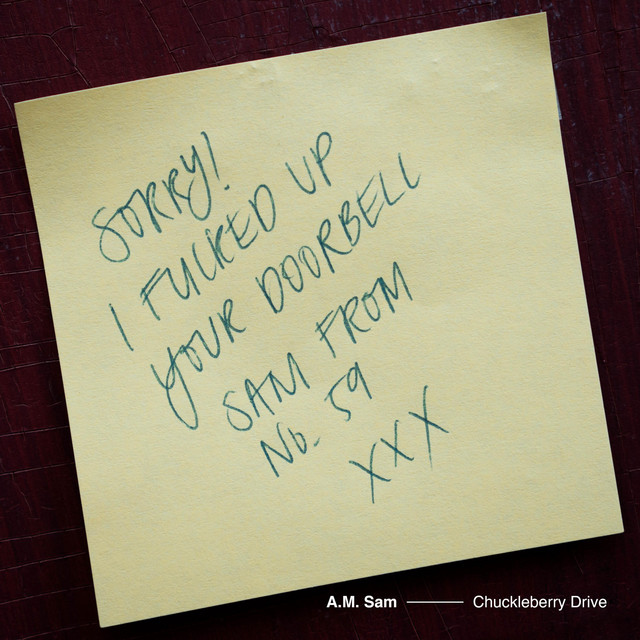 SORRY!
I FUCKED UP
YOUR DOORBELL
SAM FROM
No. 59
XXX
A.M. Sam — Chuckleberry Drive